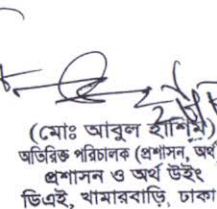 (মোঃ আবুল হাশিম)
অতিরিক্ত পরিচালক (প্রশাসন, অর্থ
প্রশাসন ও অর্থ উইং
ডিএই, খামারবাড়ি, ঢাকা